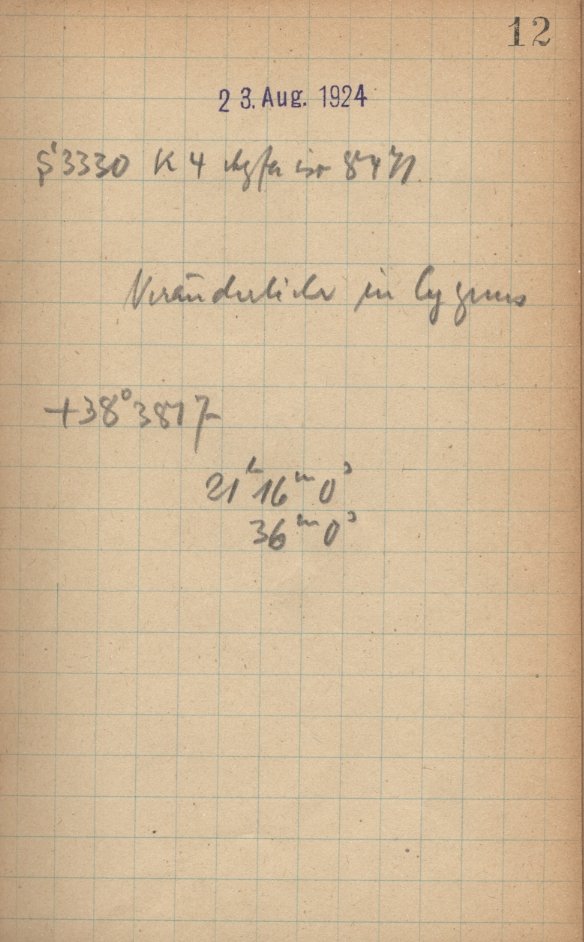 12
23. Aug. 1924
S 3330 K 4 Agfa iso
Veränderliche in Cygnus
+38° 3817
21ʰ 16ᵐ 0ˢ
36ᵐ 0ˢ